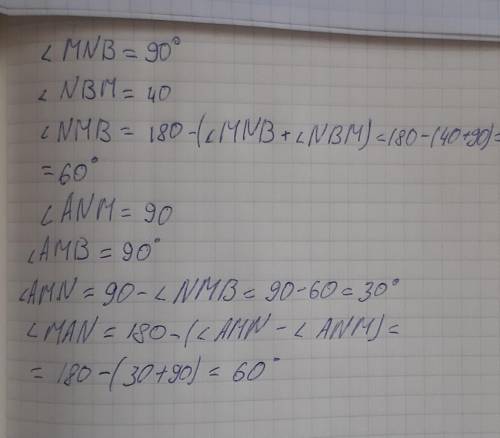 ∠MNB = 90°
∠NBM = 40
∠NMB = 180-(∠MNB + ∠NBM) = 180-(40+90) =
= 60°
∠ANM = 90
∠AMB = 90°
∠AMN = 90 - ∠NMB = 90-60 = 30°
∠MAN = 180 - (∠AMN - ∠ANM) =
= 180 - (30+90) = 60°